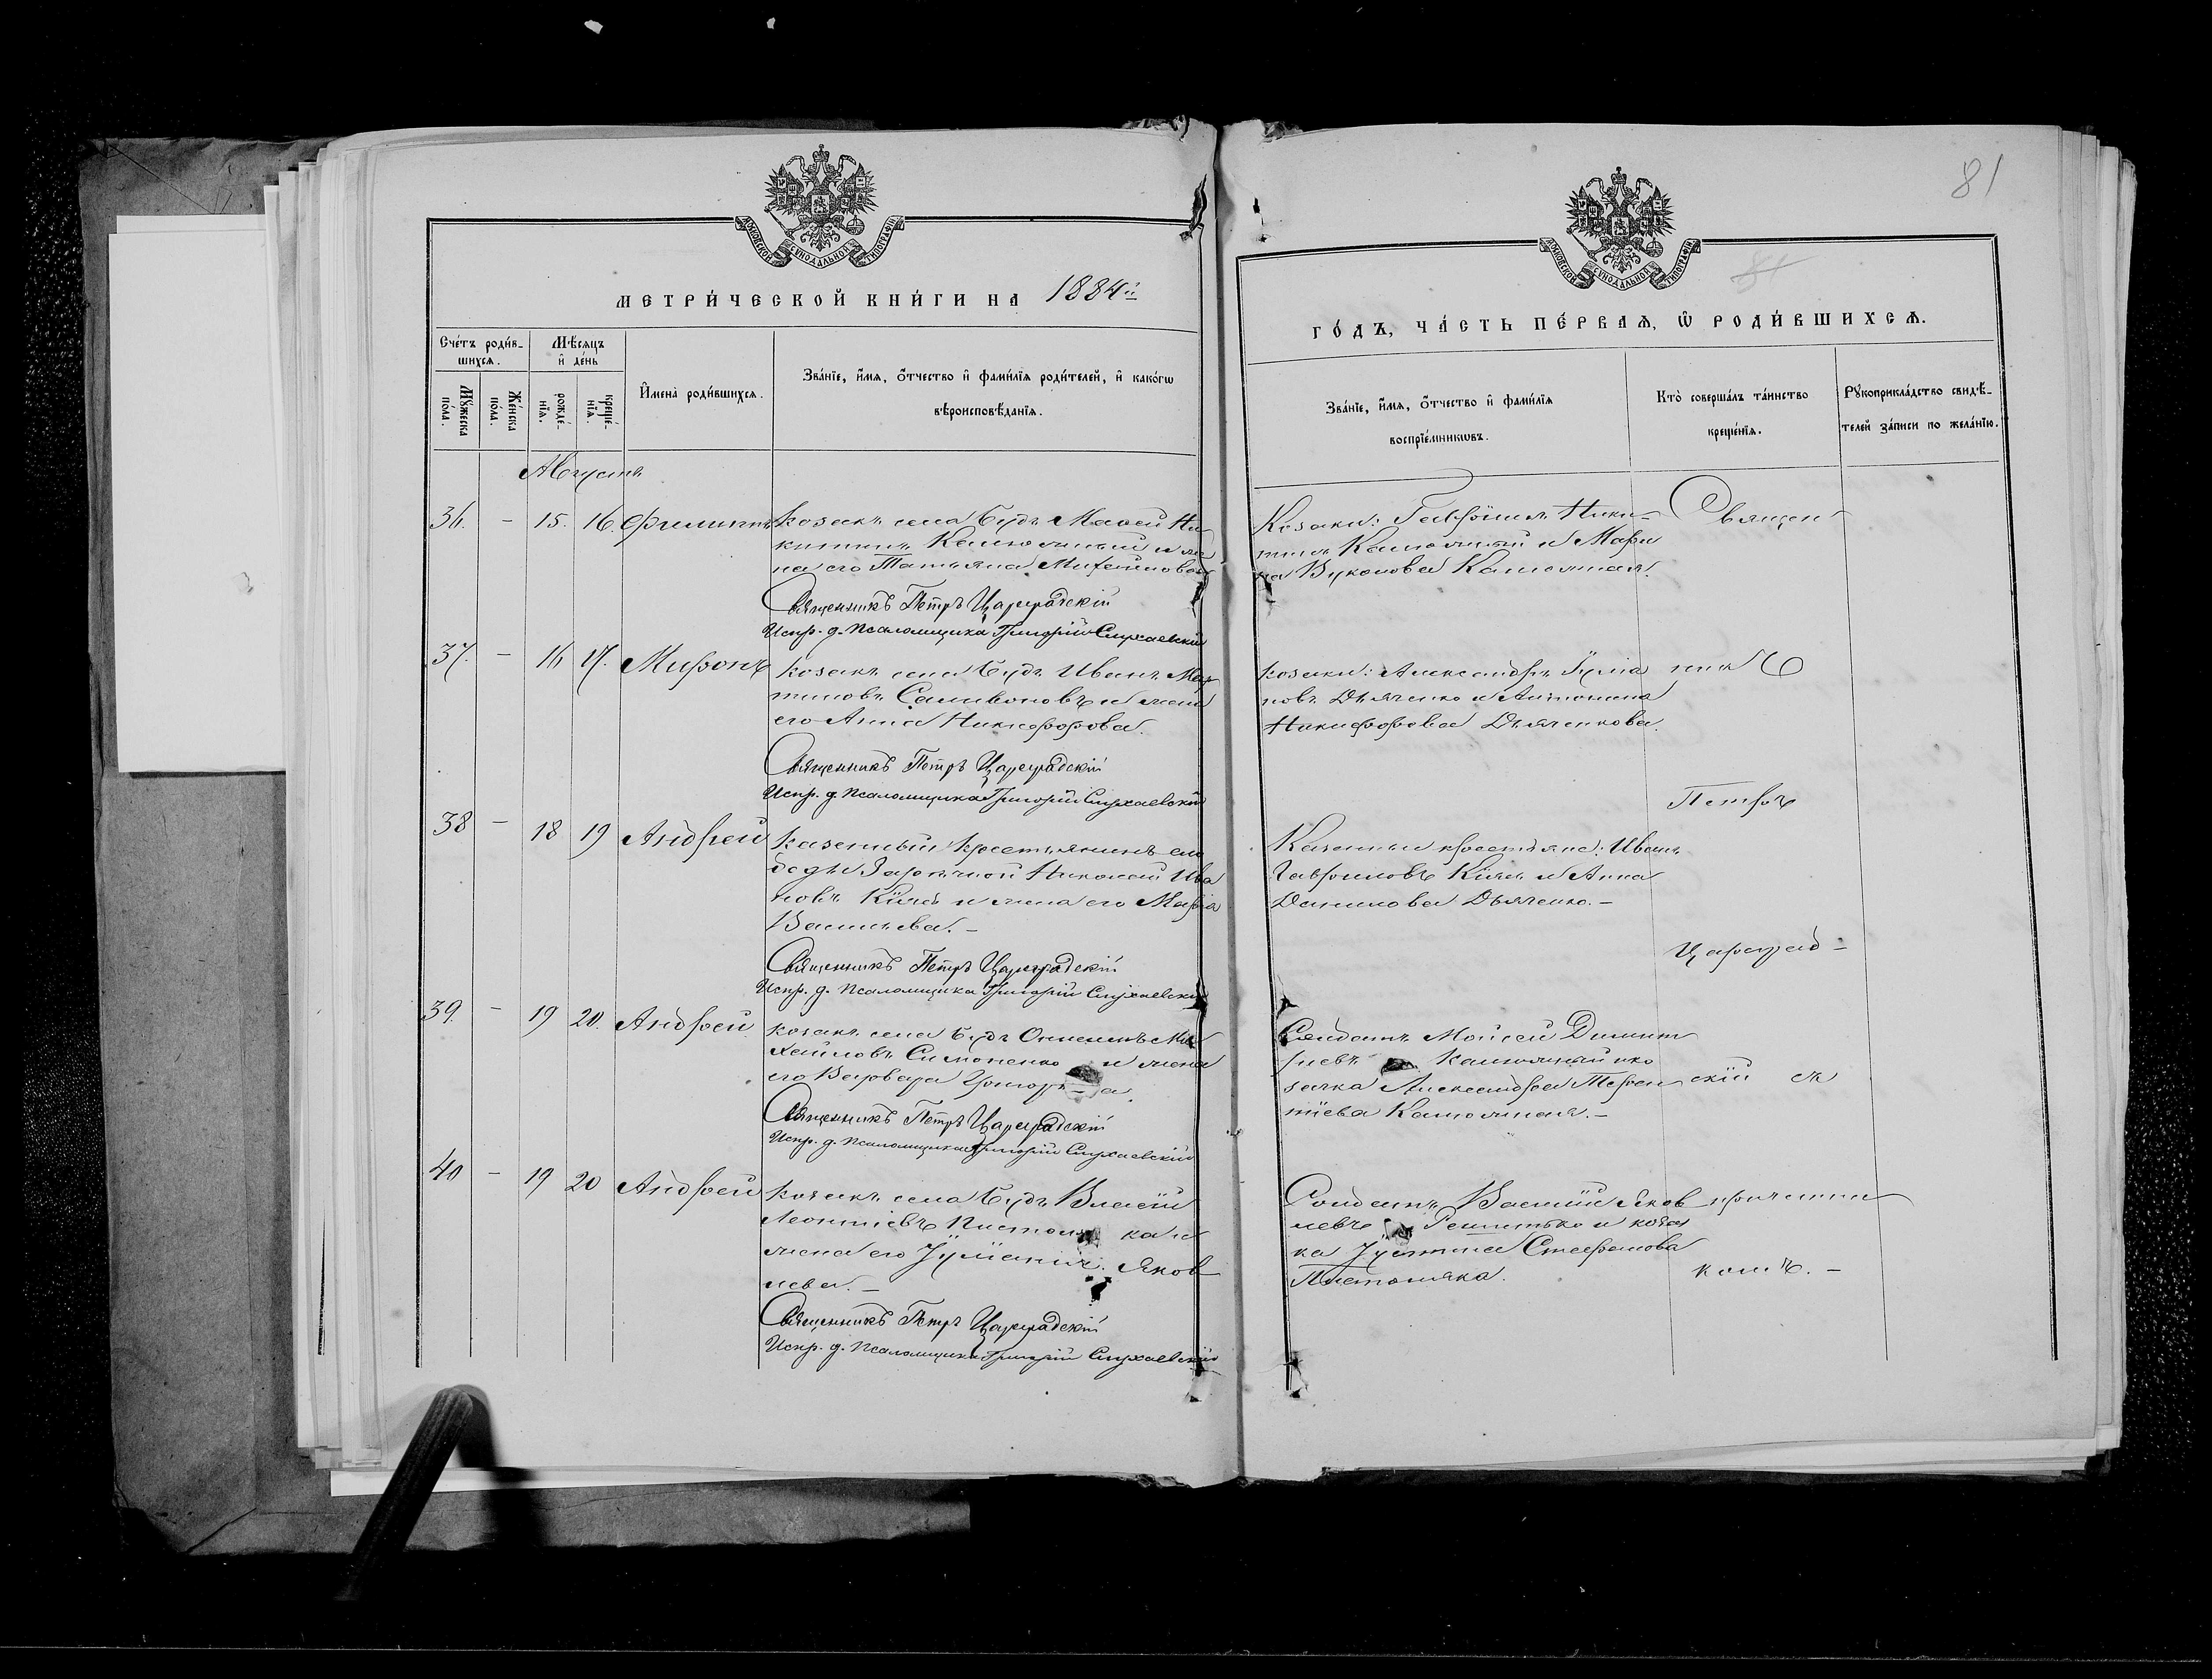 81
МОСКОВСКОЙ СѴНОДАЛЬНОЙ ТИПОГРАФІИ
МЕТРИ́ЧЕСКОЙ КНИ́ГИ НА 1884й
Сче́тъ роди́в-
шихсѧ.
Мѣ́сѧцъ
и҆ де́нь
Мꙋ́жеска
по́ла.
Же́нска
по́ла.
рожде́-
нїѧ.
креще́-
нїѧ.
И҆мена̀ роди́вшихсѧ.
Зва́нїе, и҆́мѧ, ѻ҆́тчество и҆ фами́лїѧ роди́телей, и҆ како́гѡ
вѣроисповѣ́данїѧ.
Августъ
36. - 15. 16. Филиппъ Козакъ села Будъ Ни-
китинъ Калюжный и же
на его Татьяна
Священникъ Петръ Цареградскій
Испр. д. псаломщика Григорій Слухаевскій
37. - 16 17. Миронъ Козакъ села Будъ Иванъ Мар
тиновъ Саливоновъ и жена
его Анна Никифорова.
Священникъ Петръ Цареградскій
Испр. д. псаломщика Григорій Слухаевскій
38 - 18 19 Андрей Казенный крестьянинъ сло
боды Заречной Николай Ива
новъ и жена его Марія
Васильева. -
Священникъ Петръ Цареградскій
Испр. д. псаломщика Григорій Слухаевскій
39. - 19 20. Андрей Козакъ села Будъ Ми
хайловъ Симоненко и жена
его Варвара
Священникъ Петръ Цареградскій
Испр. д. псаломщика Григорій Слухаевскій
40 - 19 20 Андрей Козакъ села Будъ Власій
Леонтіевъ и
жена его Іуліанія Яков
лева. -
Священникъ Петръ Цареградскій
Испр. д. псаломщика Григорій Слухаевскій
МОСКОВСКОЙ СѴНОДАЛЬНОЙ ТИПОГРАФІИ
81
ГО́ДЪ, ЧА́СТЬ ПЕ́РВАѦ, Ѡ҆ РОДИ́ВШИХСѦ.
Зва́нїе, и҆́мѧ, ѻ҆́тчество и҆ фами́лїѧ
воспрїе́мникѡвъ.
Кто̀ соверша́лъ та́инство
креще́нїѧ.
Рꙋкоприкла́дство свидѣ́-
телей за́писи по жела́нїю.
Козаки: Гавріилъ Ники-
тинъ Калюжный и Мари
на Вуколова Калюжная.
Священ-
Козаки: Александръ Іулiа
новъ Дьяченко и Антонина
Никифорова Дьяченкова.
никъ
Петръ
Казенные крестьяне: Иванъ
Гавриловъ и Анна
Данилова Дьяченко. -
Цареград-
Солдатъ Мойсей Димит
ріевъ Калюжный и ко
зачка Александра Терен
тіева Калюжная. -
скій съ
Солдатъ Василій Яков
левъ и козач
ка Іустина Стефанова
причетни
комъ. -